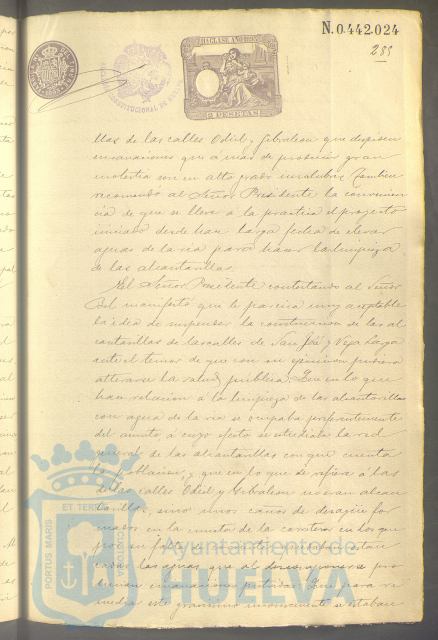 N. 0.442.024
255
HAGLASE AÑO 1893
2 PESETAS
llas de las calles Odiel y Gibraleon que despiden
emanaciones que á mas de producir gran
molestia son en alto grado insalubres. Tambien
recomendó al Señor Presidente la convenien
cia de que se lleve á la practica el proyecto
iniciado desde hace larga fecha de elevar
aguas de la ria para hacer la limpieza
de las alcantarillas.
El Señor Presidente contestando al Señor
manifestó que le parecia muy aceptable
la idea de suspender la construccion de las al
cantarillas de las calles de San José y Vega Larga
ante el temor de que con su ejecucion pudiera
alterarse la salud publica. Que en lo que
hace relacion a la limpieza de las alcantarillas
con agua de la ria se ocupaba preferentemente
del asunto, á cuyo efecto se estudiaba la red
general de las alcantarillas con que cuenta
la poblacion, y que en lo que se refiere á las
de las calles Odiel y Gibraleon no eran alcan
tarillas, sino unos caños de desagüe for
mados en la cuneta de la carretera en los que
por su estan
las aguas, que al descomponerse pro
ducen emanaciones Que para re
mediar este inconveniente se estaban
PORTUS MARIS ET TERRAE CUSTODIA
Ayuntamiento de
HUELVA